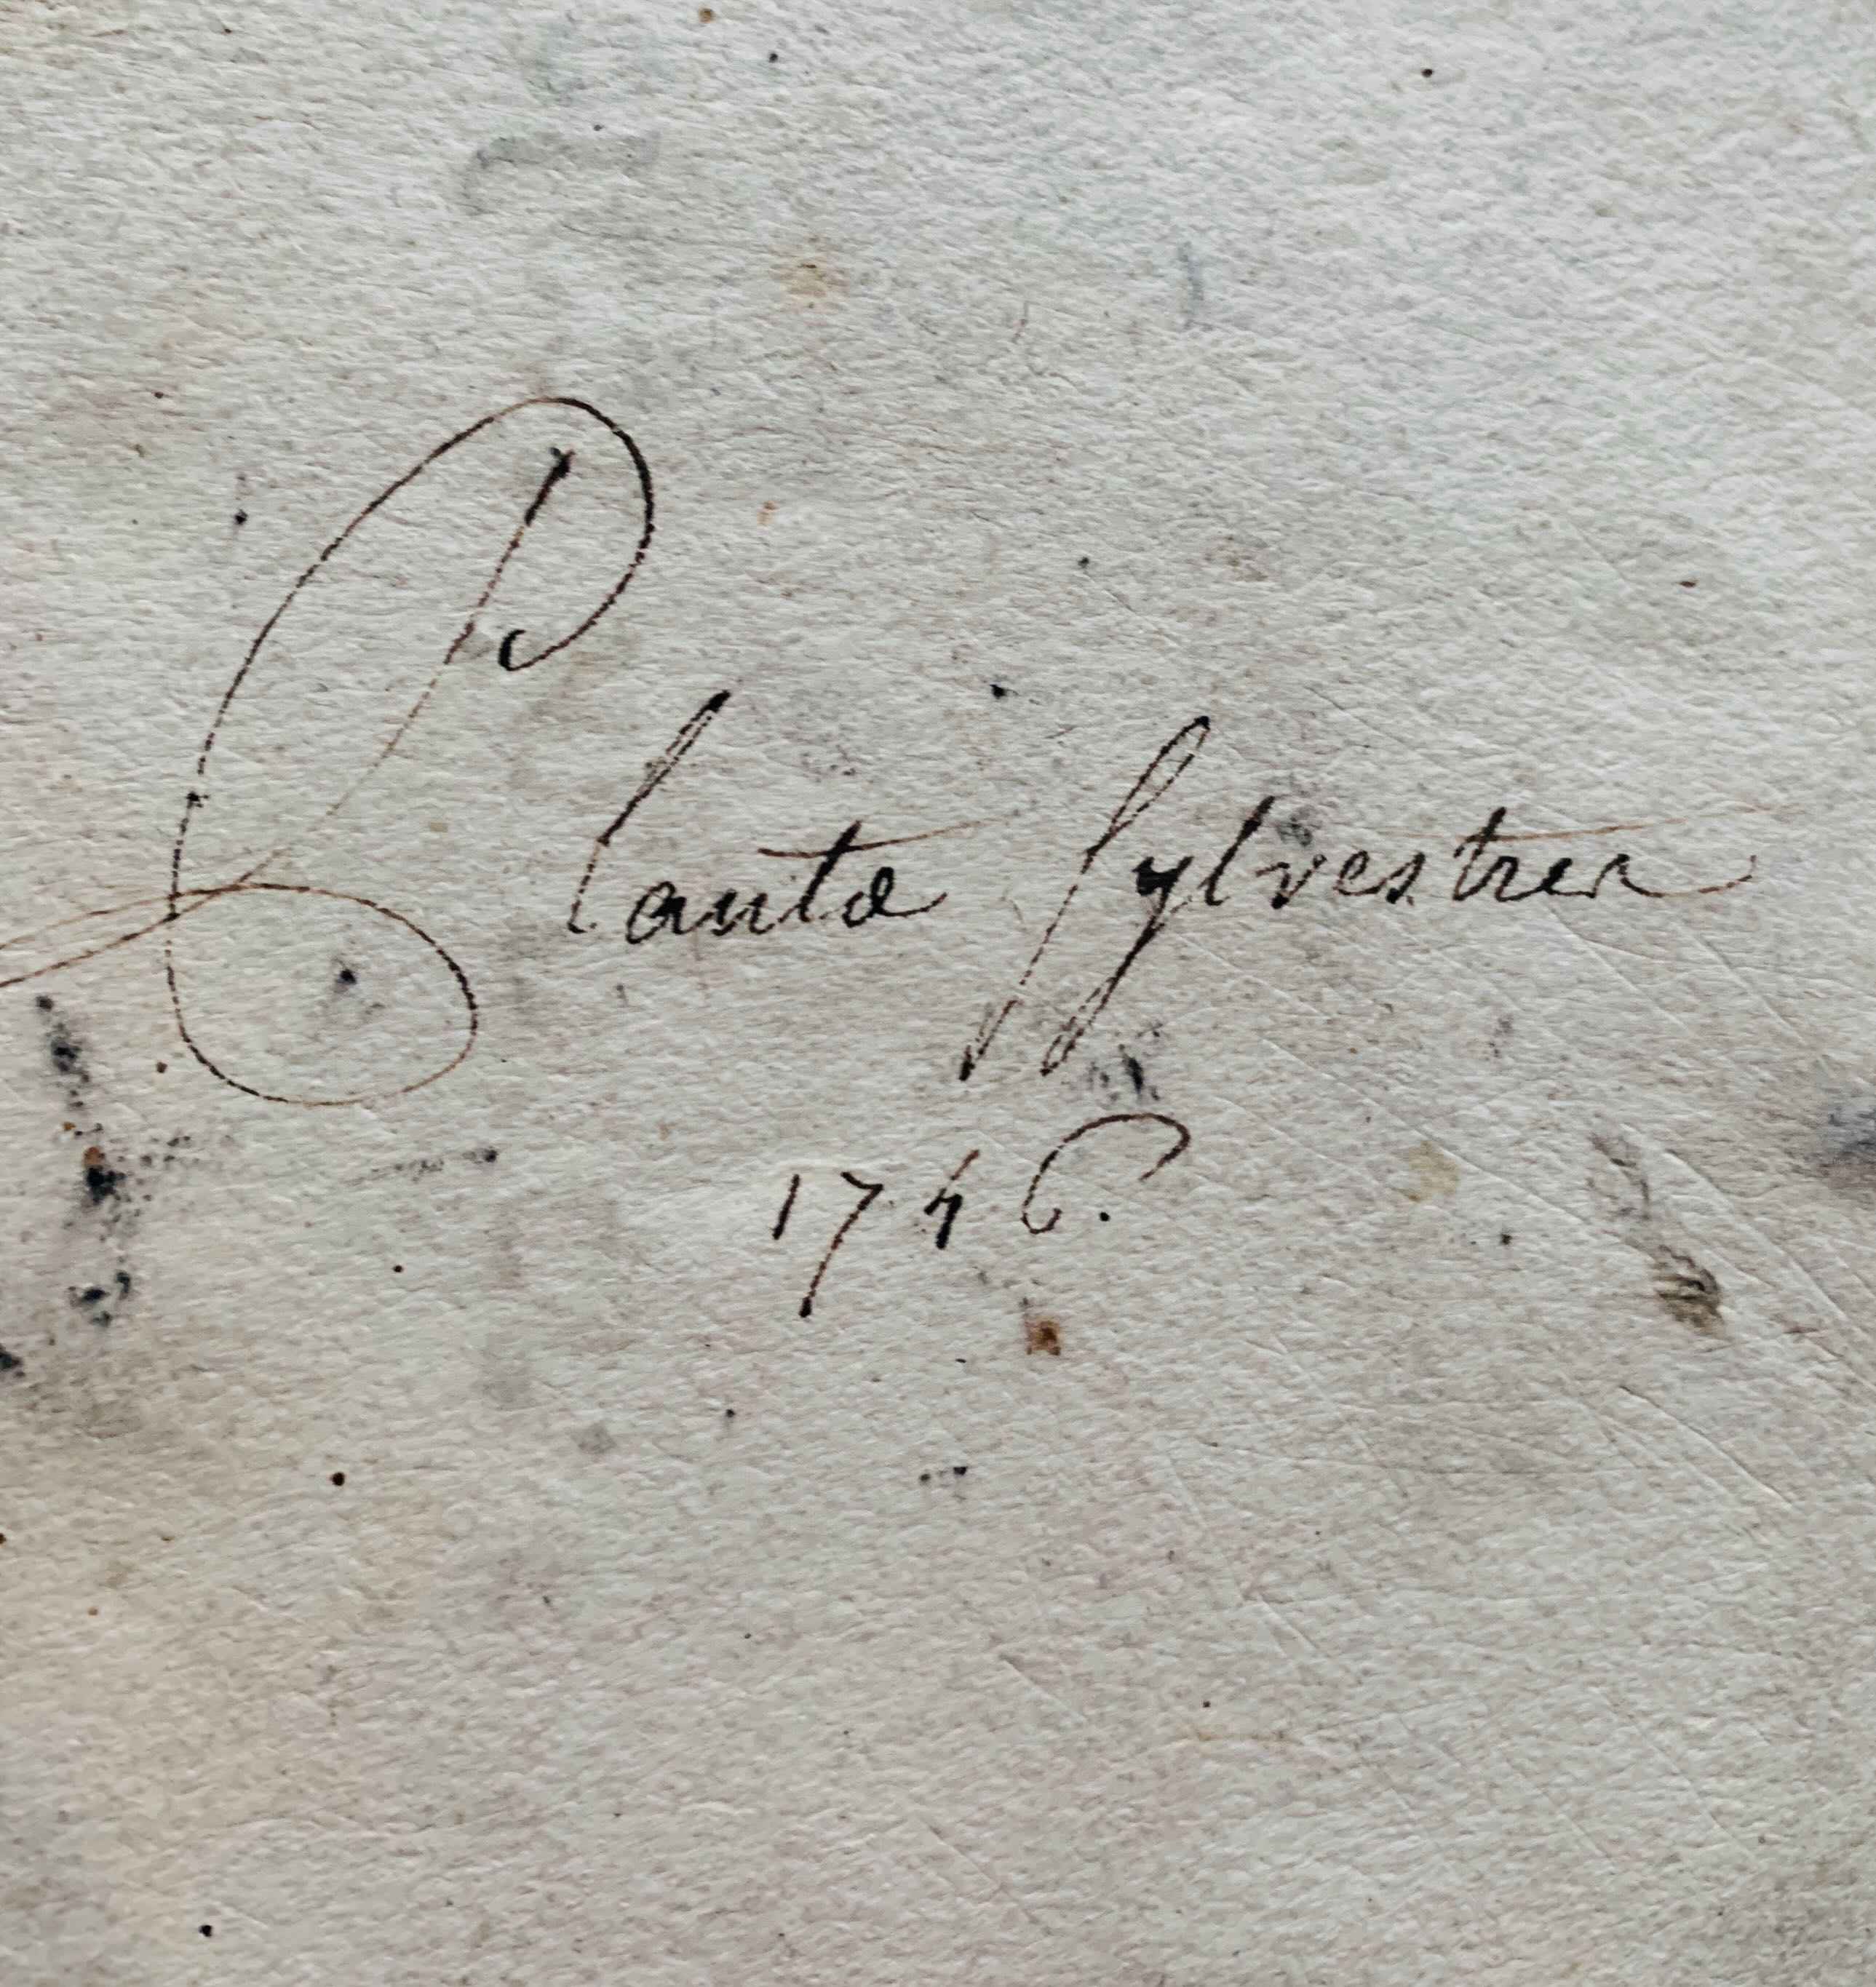 Plantæ Sylvestres
1746.